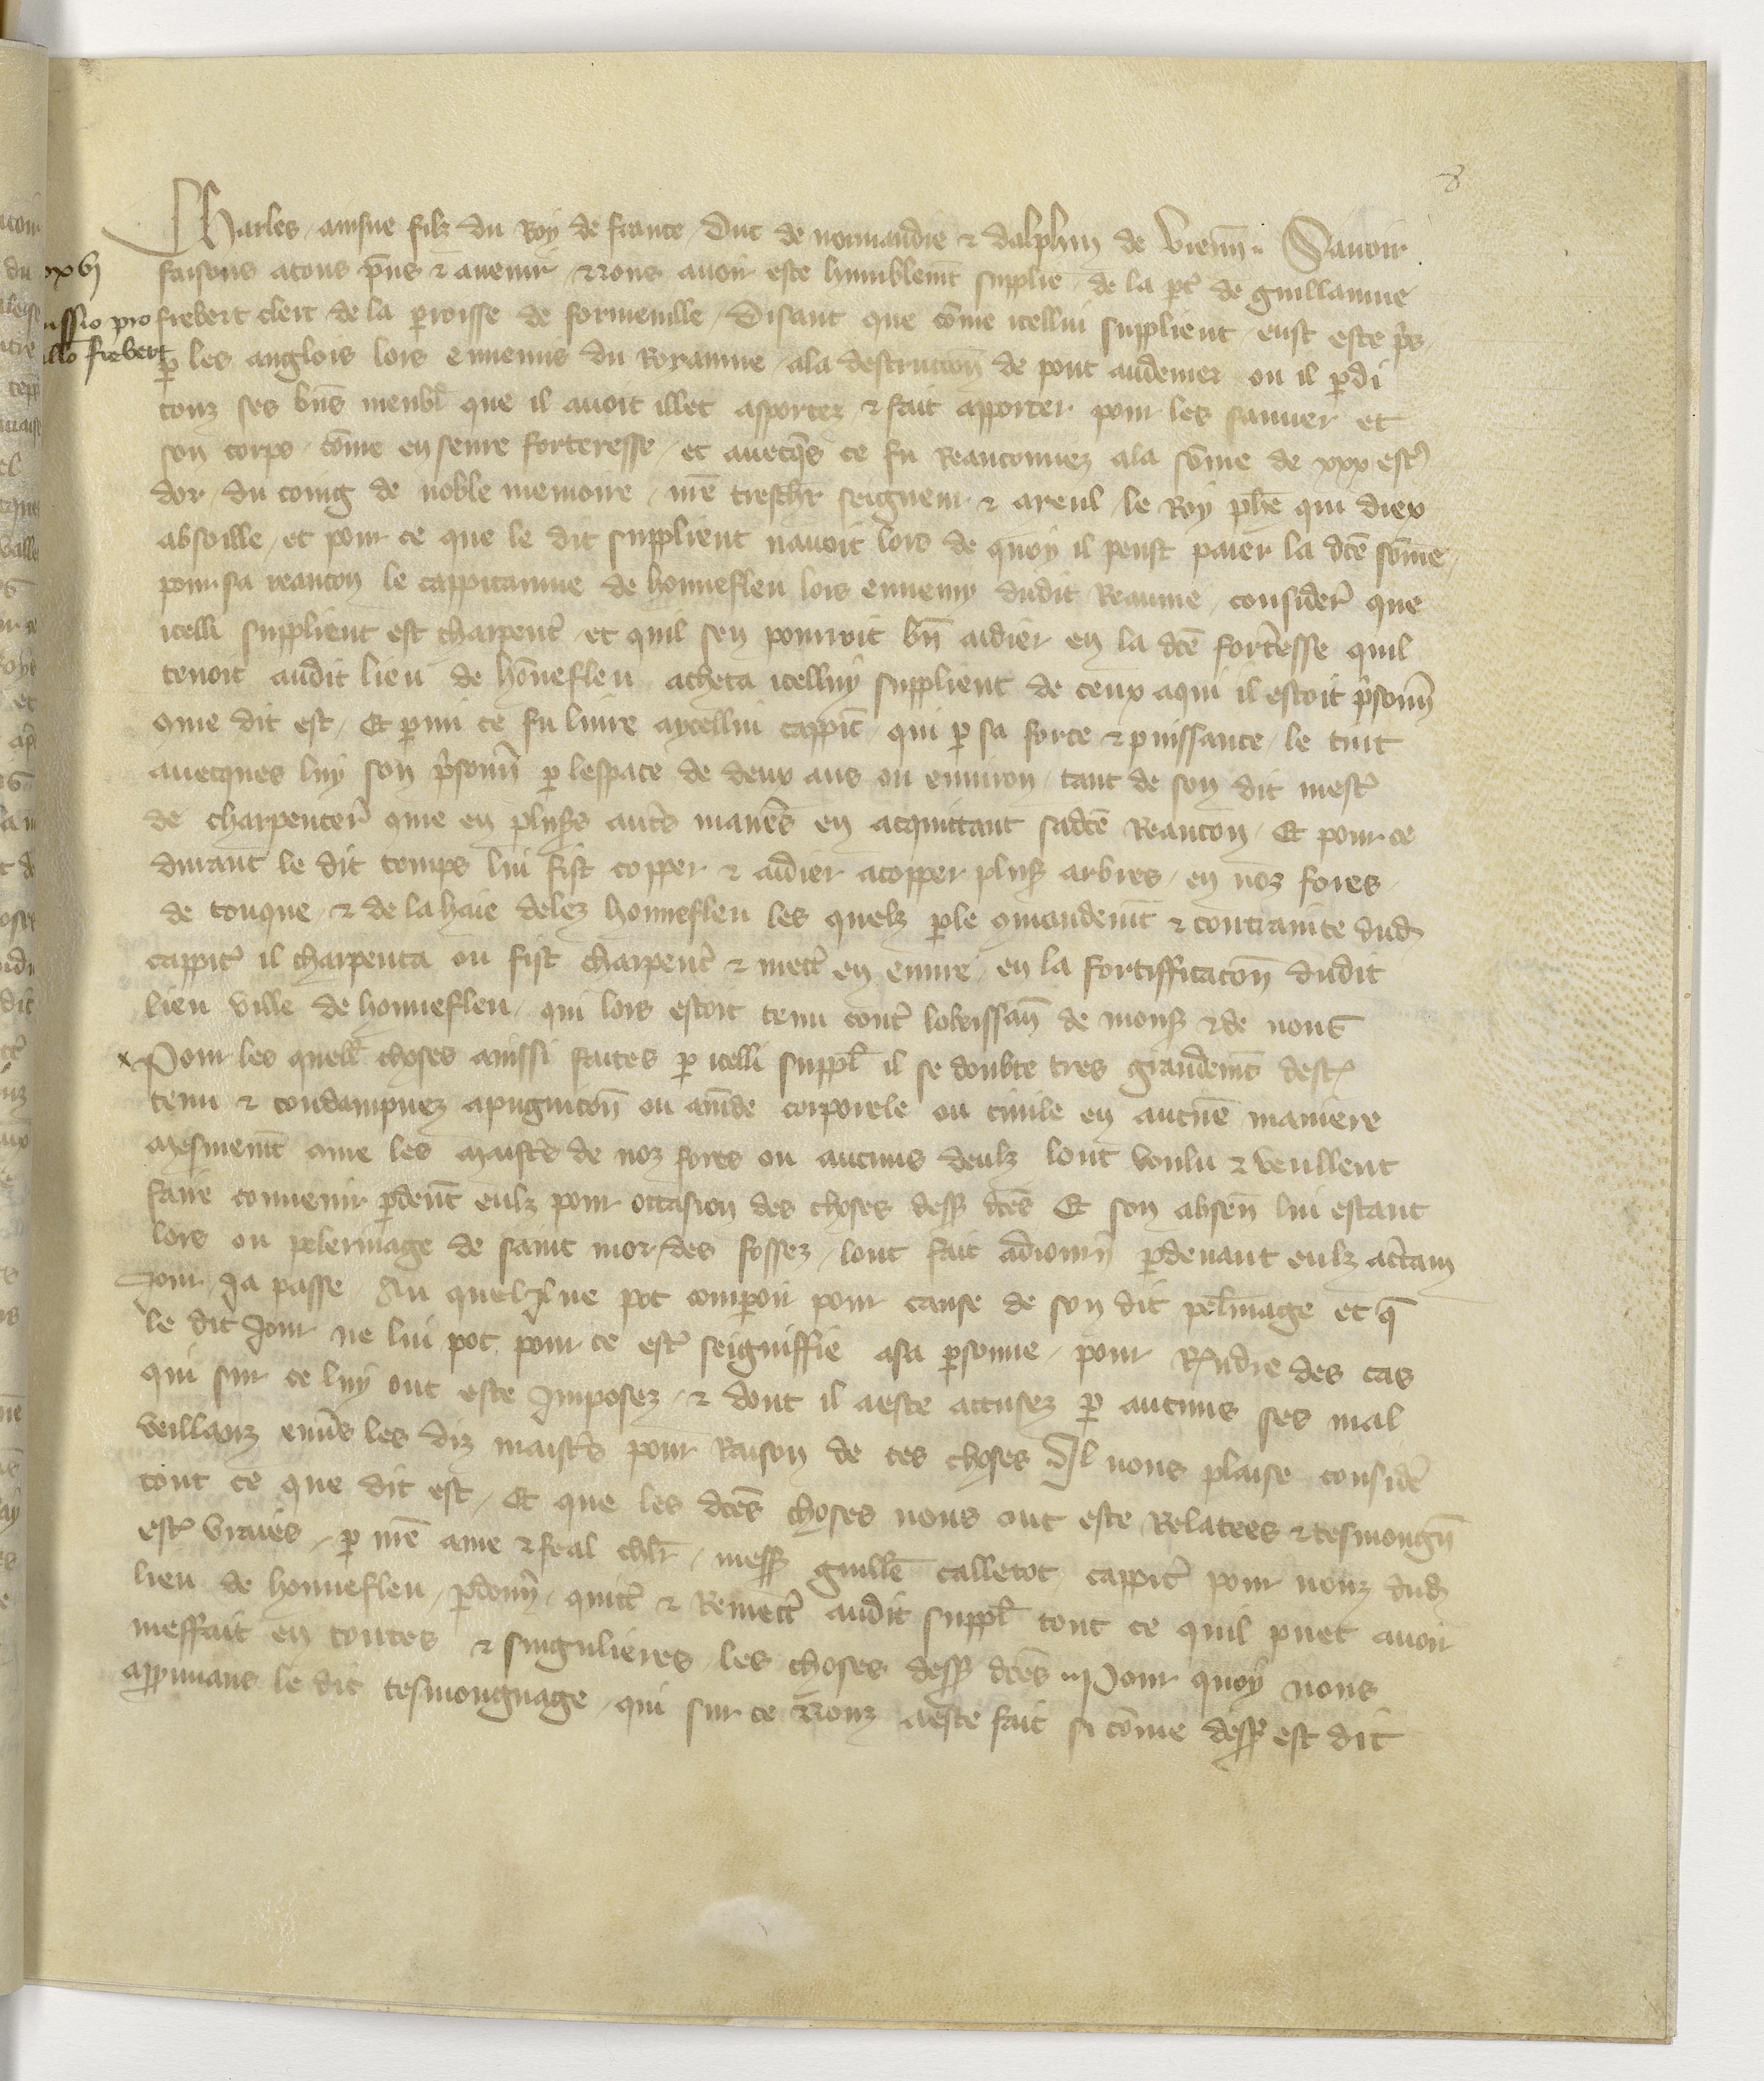 8
Charles ainsne filz du Roy de france Duc de normandie & dalphin de vienn̄. Savoir
faisons atous pn̄s & avenir / a nous avoir este humblemt̄ supplie de la pt̄ de guillaume
frebert clerc de la ꝑroisse de formeville / Disant que cōme icellui supplient eust este pris
xxvj
issio pro
illō frebert
ꝑ les anglois lors ennemis du Royaume / ala destruccōn de pont audemer ou il ꝑdi
touz ses bn̄s meubl̄ que il avoit illec aportez & fait apporter pour les sauver et
son corps / cōme en seure forteresse / et avecq̄s ce fu Reanconnez ala sōme de xxx esc̄
dor / du coing de noble memoire / nr̄e treschr̄ seigneur & ayeul / le Roy ph̄e qui diex
absoille / et pour ce que le dit supplient navoit lors de quoy il peust paier la dc̄e sōme /
pour sa reancon le cappitainne de honnefleu lors ennemy dudit Reaume / consider̄ que
icelli supplient est charpent̄ / et quil sen pourroit bn̄ aidier en la dc̄e fort̄esse quil
tenoit audit lieu de hōnefleu acheta icelluy supplient de ceux aqui il estoit p̄sonn̄
9me dit est / Et ꝑmi ce fu livre aycellui cappit̄ / qui ꝑ sa force & puissance / le tint
avecques luy son p̄sonn̄ ꝑ lespace de deux ans ou environ / tant de son dit mest̄
de charpenter̄ 9me en plus̄s aut̄s manier̄s en acquittant sadc̄e Reancon / Et pour ce
durant le dit temps lui fist copper & aidier acopper plus̄s arbres / en noz fores
de touque / & de la haie delez honnefleu les quelz ꝑ le 9mandemt̄ & contrainte dud̄
cappit̄ il charpenta ou fist charpent̄ & mect̄ en euvre / en la fortifficacōn dudit
lieu ville de honnefleu / qui lors estoit tenu cont̄ lobeissan̄ de mons̄ & de nous
x Pour les quell̄ choses ainssi faites ꝑ icelli suppl̄ il se doubte tres grandemt̄ dest̄
tenu & condampnez apugnicōn ou amēde corporele ou civile en aucūe maniere
mesmemt̄ 9me les maist̄s de noz fores ou aucuns deulz lont voulu & veullent
faire convenir ꝑdevt̄ eulz pour occasion des choses dess̄ dc̄es Et son absen̄ lui estant
lors ou pelerinage de saint mor des fossez / lont fait adiourn̄ ꝑdevant eulz ac̄tain
Jour Ja passe / Au quel il ne pot comparoir pour cause de son dit pel̄inage et q̄
le dit Jour ne lui pot pour ce est̄ seigniffie asa ꝑsonne / pour R̄ndre des cas
qui sur ce luy ont este Imposez / & dont il aeste accusez ꝑ aucuns ses mal
veillanz env̄s les diz maist̄s pour Raison de ces choses Il nous plaise consider̄
tout ce que dit est / Et que les dc̄es choses nous ont este Relatees & tesmongn̄
est̄ vraies / ꝑ nr̄e ame & feal chl̄r / mess̄ guill̄e calletot cappit̄ pour nouz dud̄
lieu de honnefleu / ꝑdonn̄ / quitt̄ & Remect̄ audit suppl̄ tout ce quil puet avoir
meffait en toutes & singulieres les choses dess̄ dc̄es .. Pour quoy nous
approuvans le dit tesmongnage / qui sur ce a nouz aeste fait si cōme dess̄ est dit